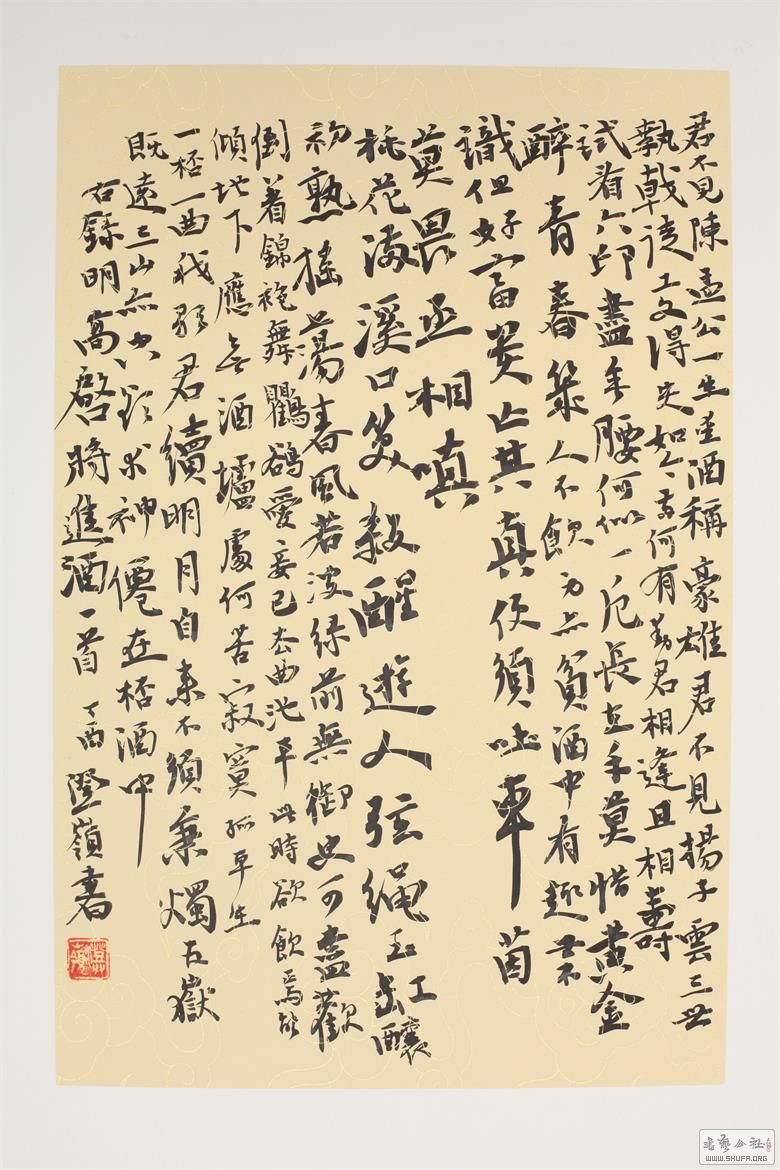 君不見陳孟公一生愛酒稱豪雄君不見揚子雲三世
執戟徒工文得失如今兩何有勸君相逢且相壽
試看六印盡垂腰何似一卮長在手莫惜黃金
醉青春幾人不飲身亦貧酒中有趣世不
識但好富貴亡其真便須吐車茵
莫畏丞相嗔
桃花滿溪口笑殺醒遊人弦繩玉缸釀
初熟搖蕩春風若波綠前無御史可盡歡
倒著錦袍舞鸜鵒愛妾已去曲池平此時欲飲焉能
傾地下應無酒壚處何苦寂寞孤平生
一桮一曲我歌君續明月自來不須秉燭五嶽
既遠三山亦空欲求神僊在桮酒中
右錄明高啓將進酒一首丁酉澄嶺書
書藝公社
WWW.SHUFA.ORG